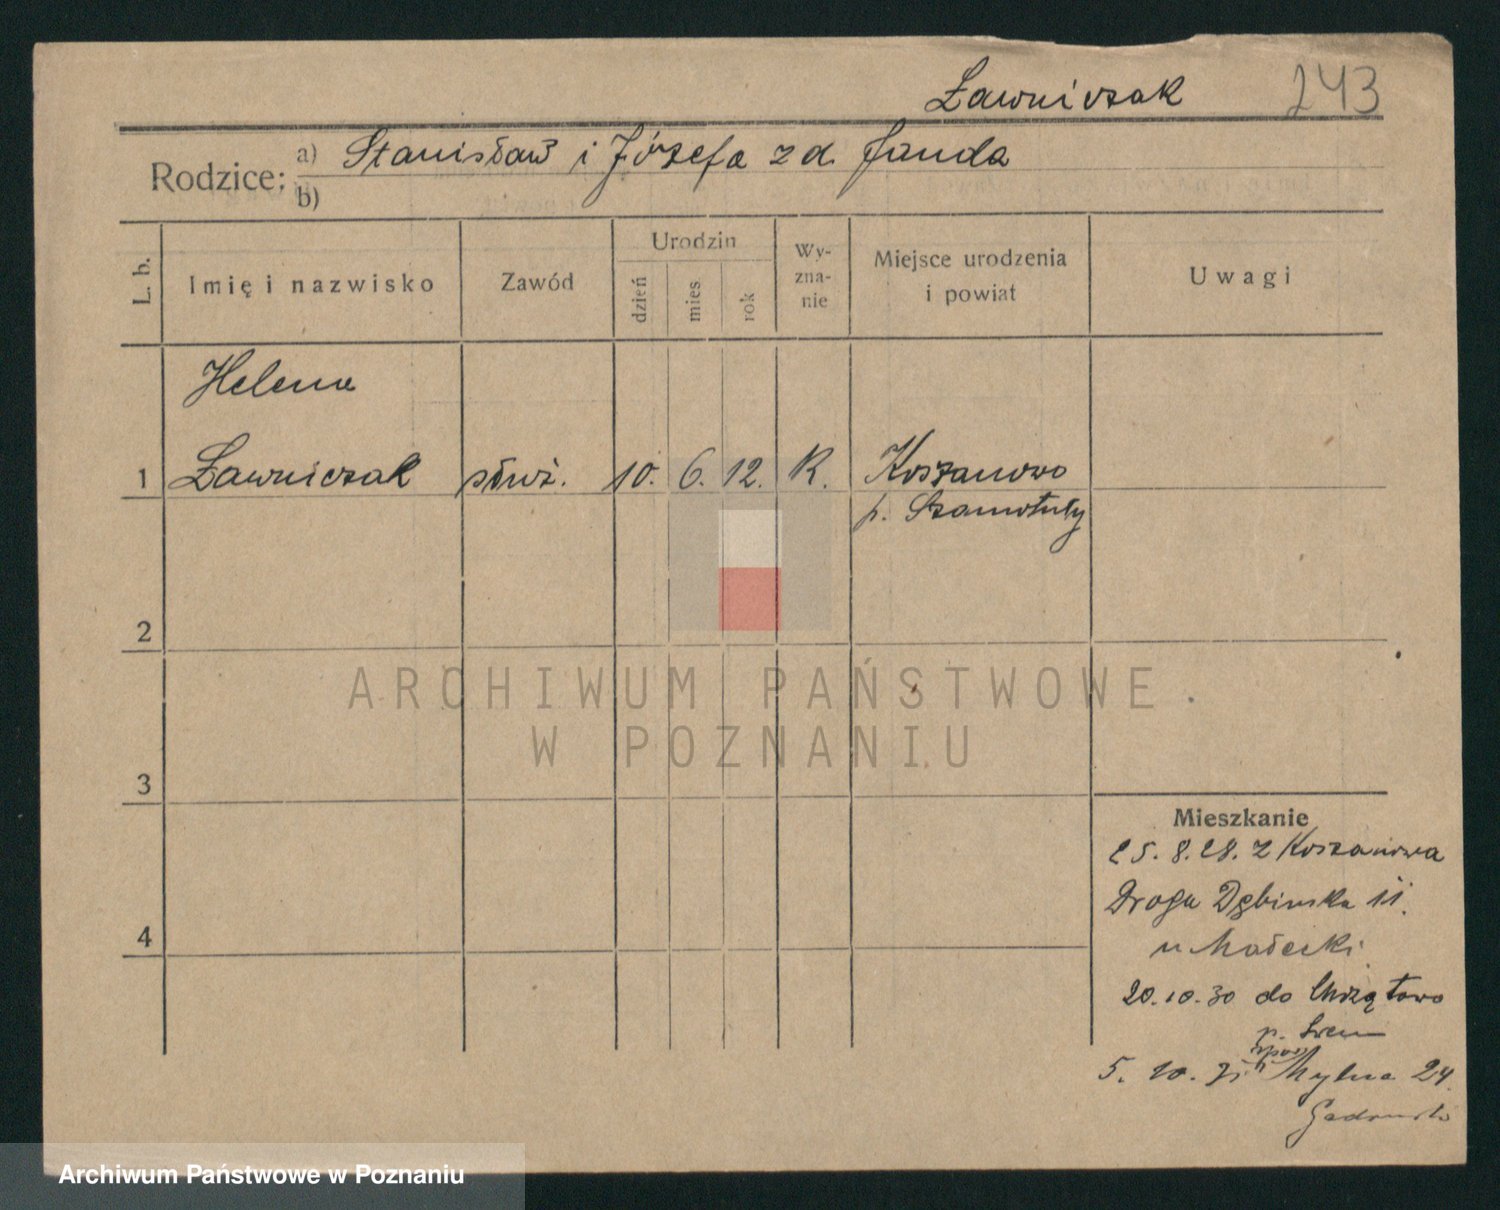 Ławniczak 243
Rodzice: a) Stanisław i Józefa z d. Janda
b)
L. b. Imię i nazwisko Zawód Urodzin dzień mies. rok Wy-zna-nie Miejsce urodzenia i powiat Uwagi
Helena
1 Ławniczak służ. 10. 6. 12. K. Koszanowo
p. Szamotuły
2
ARCHIWUM PAŃSTWOWE
W POZNANIU
3
Mieszkanie
25. 8. 28. z Koszanowa
Droga Dębińska 11.
u Małecki
4
20.10.30 do Chrząstowo
p. Śrem
5. 10. 31. Mylna 24.
Archiwum Państwowe w Poznaniu